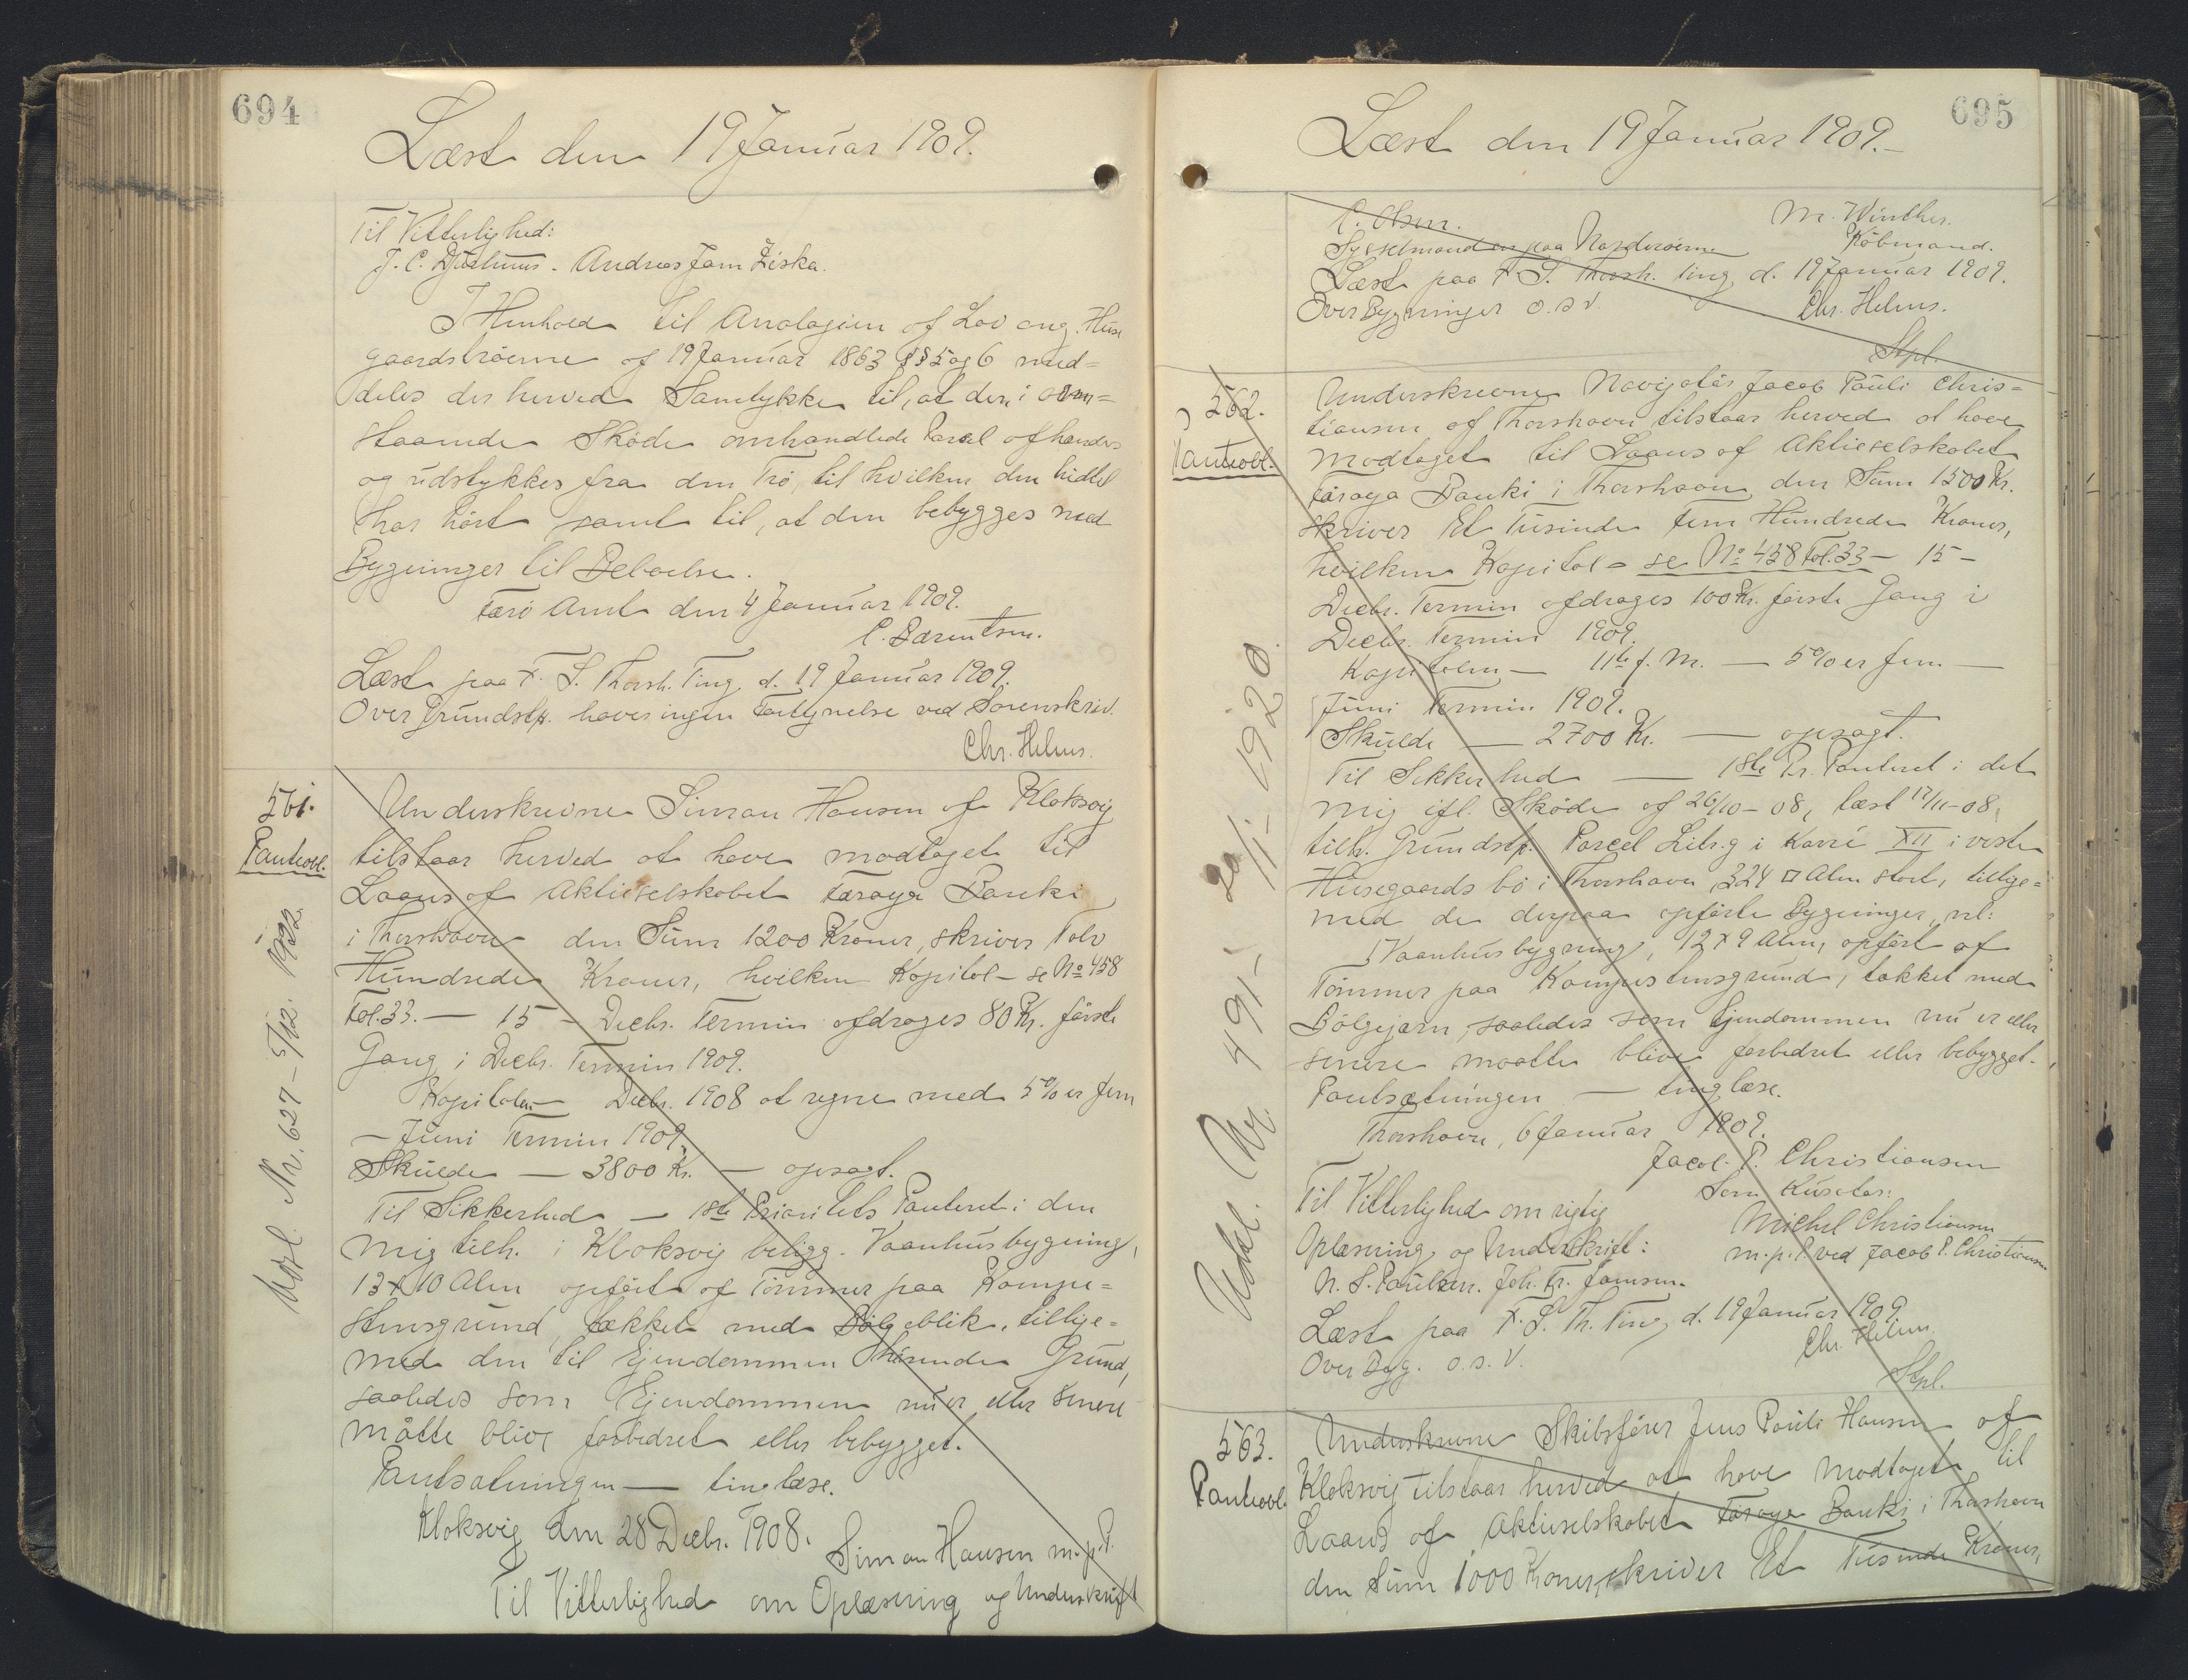 694
Læst den 19 Januar 1909.
Til Vitterlighed:
J. C. Djurhuus. Andreas Jam Ziska.
I Henhold til Analogien af Lov ang. Huse
gaardstrøerne af 19 Januar 1863 §§ 5 og 6 med=
deles der herved Samtykke til, at den i oven=
staaende Skøde omhandlede Parcel afhændes
og udstykkes fra den Trø, til hvilken den hidtil
har hørt samt til, at den bebygges med
Bygninger til Beboelse.
Færø Amt den 4 Januar 1909.
C. Bærentsen.
Læst paa F. S. Thorsh. Ting d. 19 Januar 1909.
Over Grundstk. haves ingen Fortegnelse ved Sorenskriv.
Chr. Helms.
561.
Panteobl.
Underskrevne Simon Hansen af Klaksvig
tilstaar herved at have modtaget til
Laans af Aktieselskabet Færøya Banki
i Thorshavn den Sum 1200 Kroner, skriver Tolv
Hundrede Kroner, hvilken Kapital - se No 458
Fol. 33. — 15 - Decbr. Termin afdrages 80 Kr. første
Gang i Decbr. Termin 1909.
Kapitalen — Decbr. 1908 at regne med 5% er fem
— Juni Termin 1909.
Skulde — 3800 Kr. — opsagt.
Til Sikkerhed — 1ste Prioritets Panteret i den
mig tilh. i Klaksvig beligg. Vaanhusbygning,
13 x 10 Alen opført af Tømmer paa Kampe=
stensgrund, tækket med Bølgeblik, tillige=
med den til Ejendommen hørende Grund,
saaledes som Ejendommen nu er eller senere
måtte blive forbedret eller bebygget.
Pantsætningen — tinglæse.
Klaksvig den 28 Decbr. 1908.
Simon Hansen m.p.P.
Til Vitterlighed om Oplæsning og Underskrift
Udsl. Nr. 627 - 5/12. 1922.
695
Læst den 19 Januar 1909.-
C. Olsen.
M. Winther.
Sysselmanden paa Norderøerne
Købmand.
Læst paa F. S. Thorsh. Ting d. 19 Januar 1909.
Over Bygninger o.s.v.
Chr. Helms.
Stpl.
562.
Panteobl.
Underskrevne Navigatør Jacob Pauli Chris=
tiansen af Thorshavn tilstaar herved at have
modtaget til Laans af Aktieselskabet
Føroya Banki i Thorshavn den Sum 1500 Kr.
skriver Et Tusinde fem Hundrede Kroner,
hvilken Kapital - se No 458 Fol. 33 — 15 -
Decbr. Termin afdrages 100 Kr. første Gang i
Decbr. Termin 1909.
Kapitalen — 11te f. M. — 5% er fem —
Juni Termin 1909.
Skulde — 2700 Kr. — opsagt.
Til Sikkerhed — 1ste Pr. Panteret i det
mig ifl. Skøde af 26/10 - 08, læst 17/11 - 08,
tilh. Grundstk. Parcel Litr. g i Karré XII i vestre
Husegaards bø i Thorshavn, 324 □ Alen stort, tillige=
med de derpaa opførte Bygninger, nl:
1 Vaanhusbygning, 12 x 9 Alen, opført af
Tømmer paa Kampestensgrund, takket med
Bølgejærn, saaledes som Ejendommen nu er eller
senere maatte blive forbedret eller bebygget.
Pantsætningen — tinglæse.
Thorshavn, 6 Januar 1909.
Jacob P. Christiansen
Som Kurator:
Michel Christiansen
m.p.P. ved Jacob P. Christiansen
Til Vitterlighed om rigtig
Oplæsning og Underskrift:
N. S. Paulsen. Joh. Fr. Jamsen.
Læst paa F. S. Th. Ting d. 19 Januar 1909
Over Byg. o.s.v.
Chr. Helms
Stpl.
Udsl. Nr. 491 - 1920.
563.
Panteobl.
Underskrevne Skibsfører Jens Pauli Hansen af
Klaksvig tilstaar herved at have modtaget til
Laans af Aktieselskabet Føroya Banki i Thorshavn
den Sum 1000 Kroner, skriver Et Tusinde Kroner,